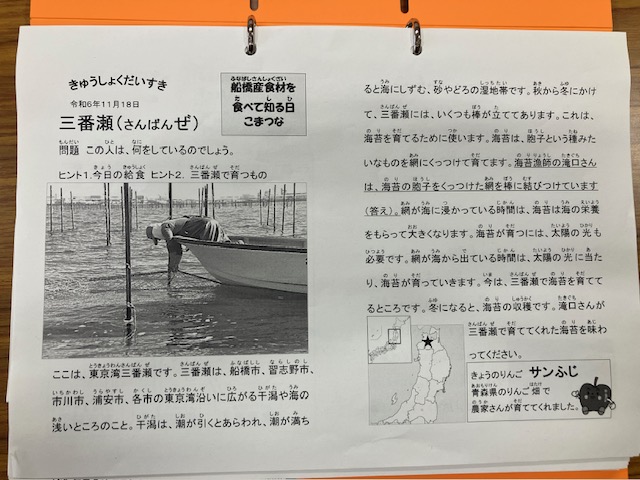 きゅうしょくだいすき
令和6年11月18日
三番瀬(さんばんぜ)
船橋産食材を
食べて知る日
こまつな
問題 この人は、何をしているのでしょう。
ヒント1.今日の給食 ヒント2. 三番瀬で育つもの
ここは、東京湾三番瀬です。三番瀬は、船橋市、習志野市、
市川市、浦安市、各市の東京湾沿いに広がる干潟や海の
浅いところのこと。干潟は、潮が引くとあらわれ、潮が満ち
ると海にしずむ、砂やどろの湿地帯です。秋から冬にかけ
て、三番瀬には、いくつも棒が立ててあります。これは、
海苔を育てるために使います。海苔は、胞子という種みた
いなものを網にくっつけて育てます。海苔漁師の滝口さん
は、海苔の胞子をくっつけた網を棒に結びつけています
(答え)。網が海に浸かっている時間は、海苔は海の栄養
をもらって大きくなります。海苔が育つには、太陽の光も
必要です。網が海から出ている時間は、太陽の光に当た
り、海苔が育っていきます。今は、三番瀬で海苔を育てて
るところです。冬になると、海苔の収穫です。滝口さんが
三番瀬で育ててくれた海苔を味わ
ってください。
きょうのりんご サンふじ
青森県のりんご畑で
農家さんが育ててくれました。